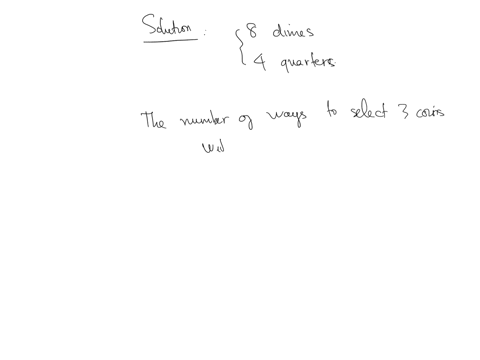 Solution : { 8 dimes
4 quarters
The number of ways to select 3 coins